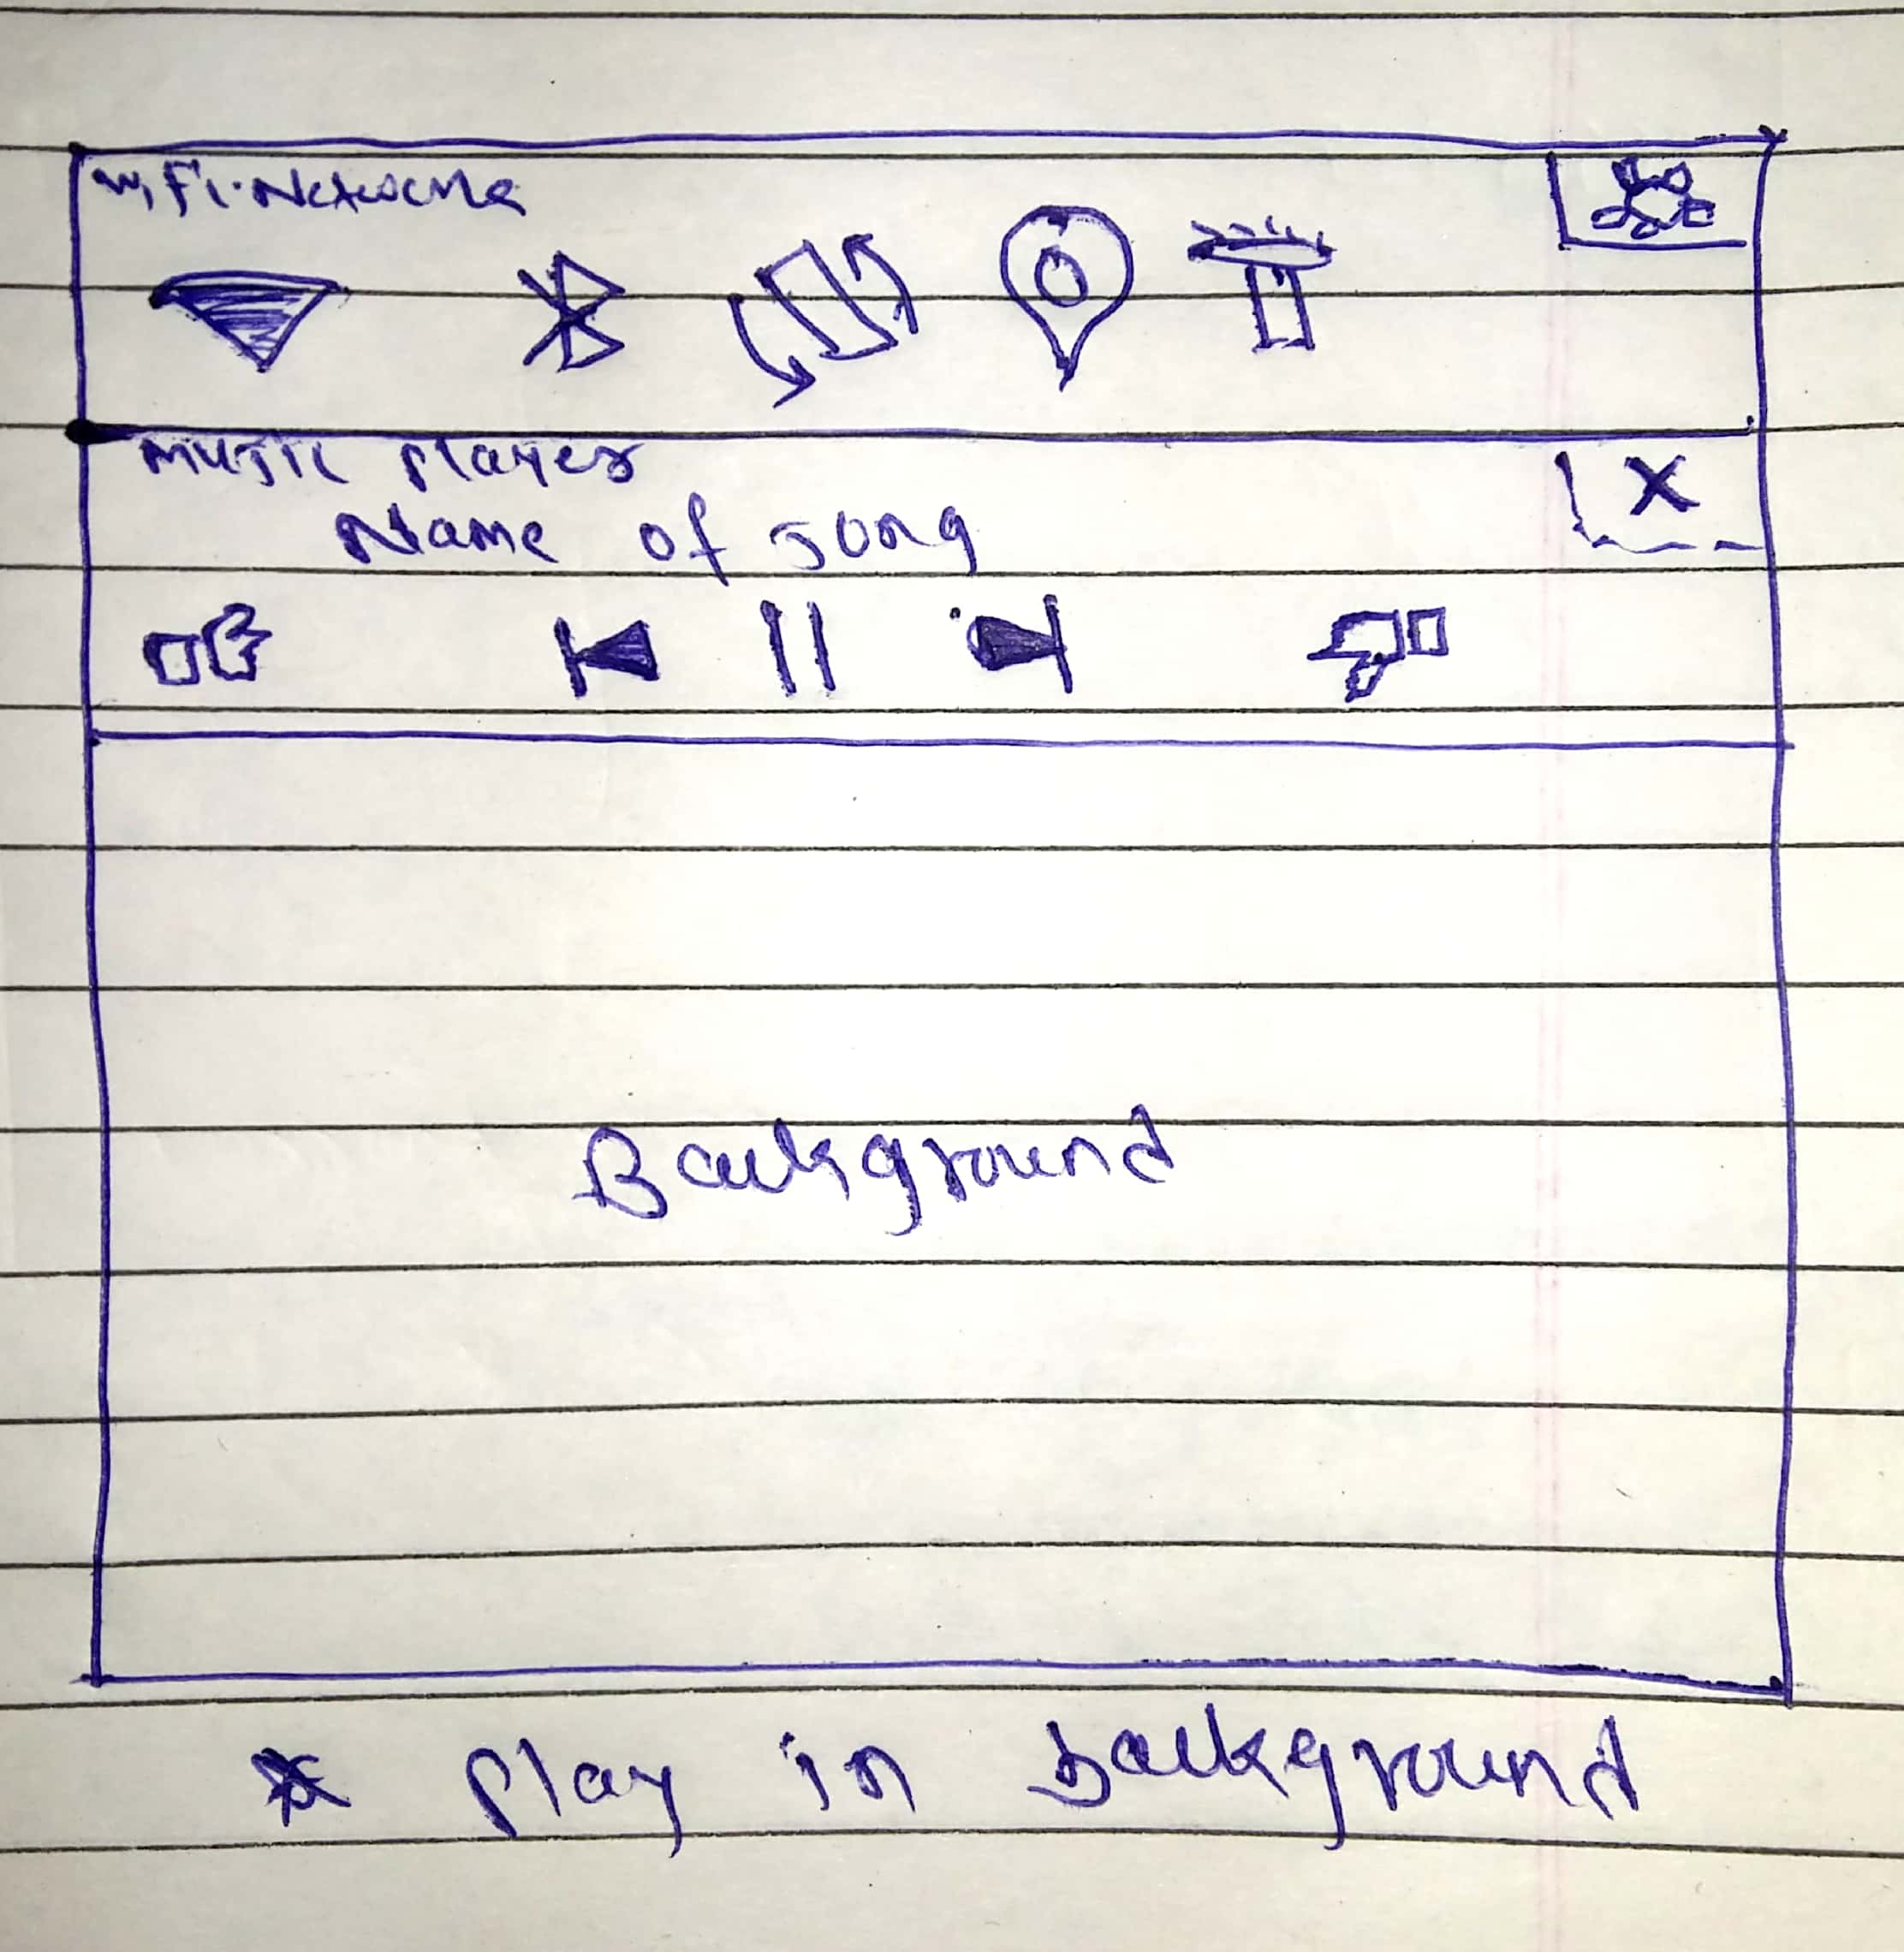 Wifi-Network
Music player
Name of song
X
Background
* Play in background